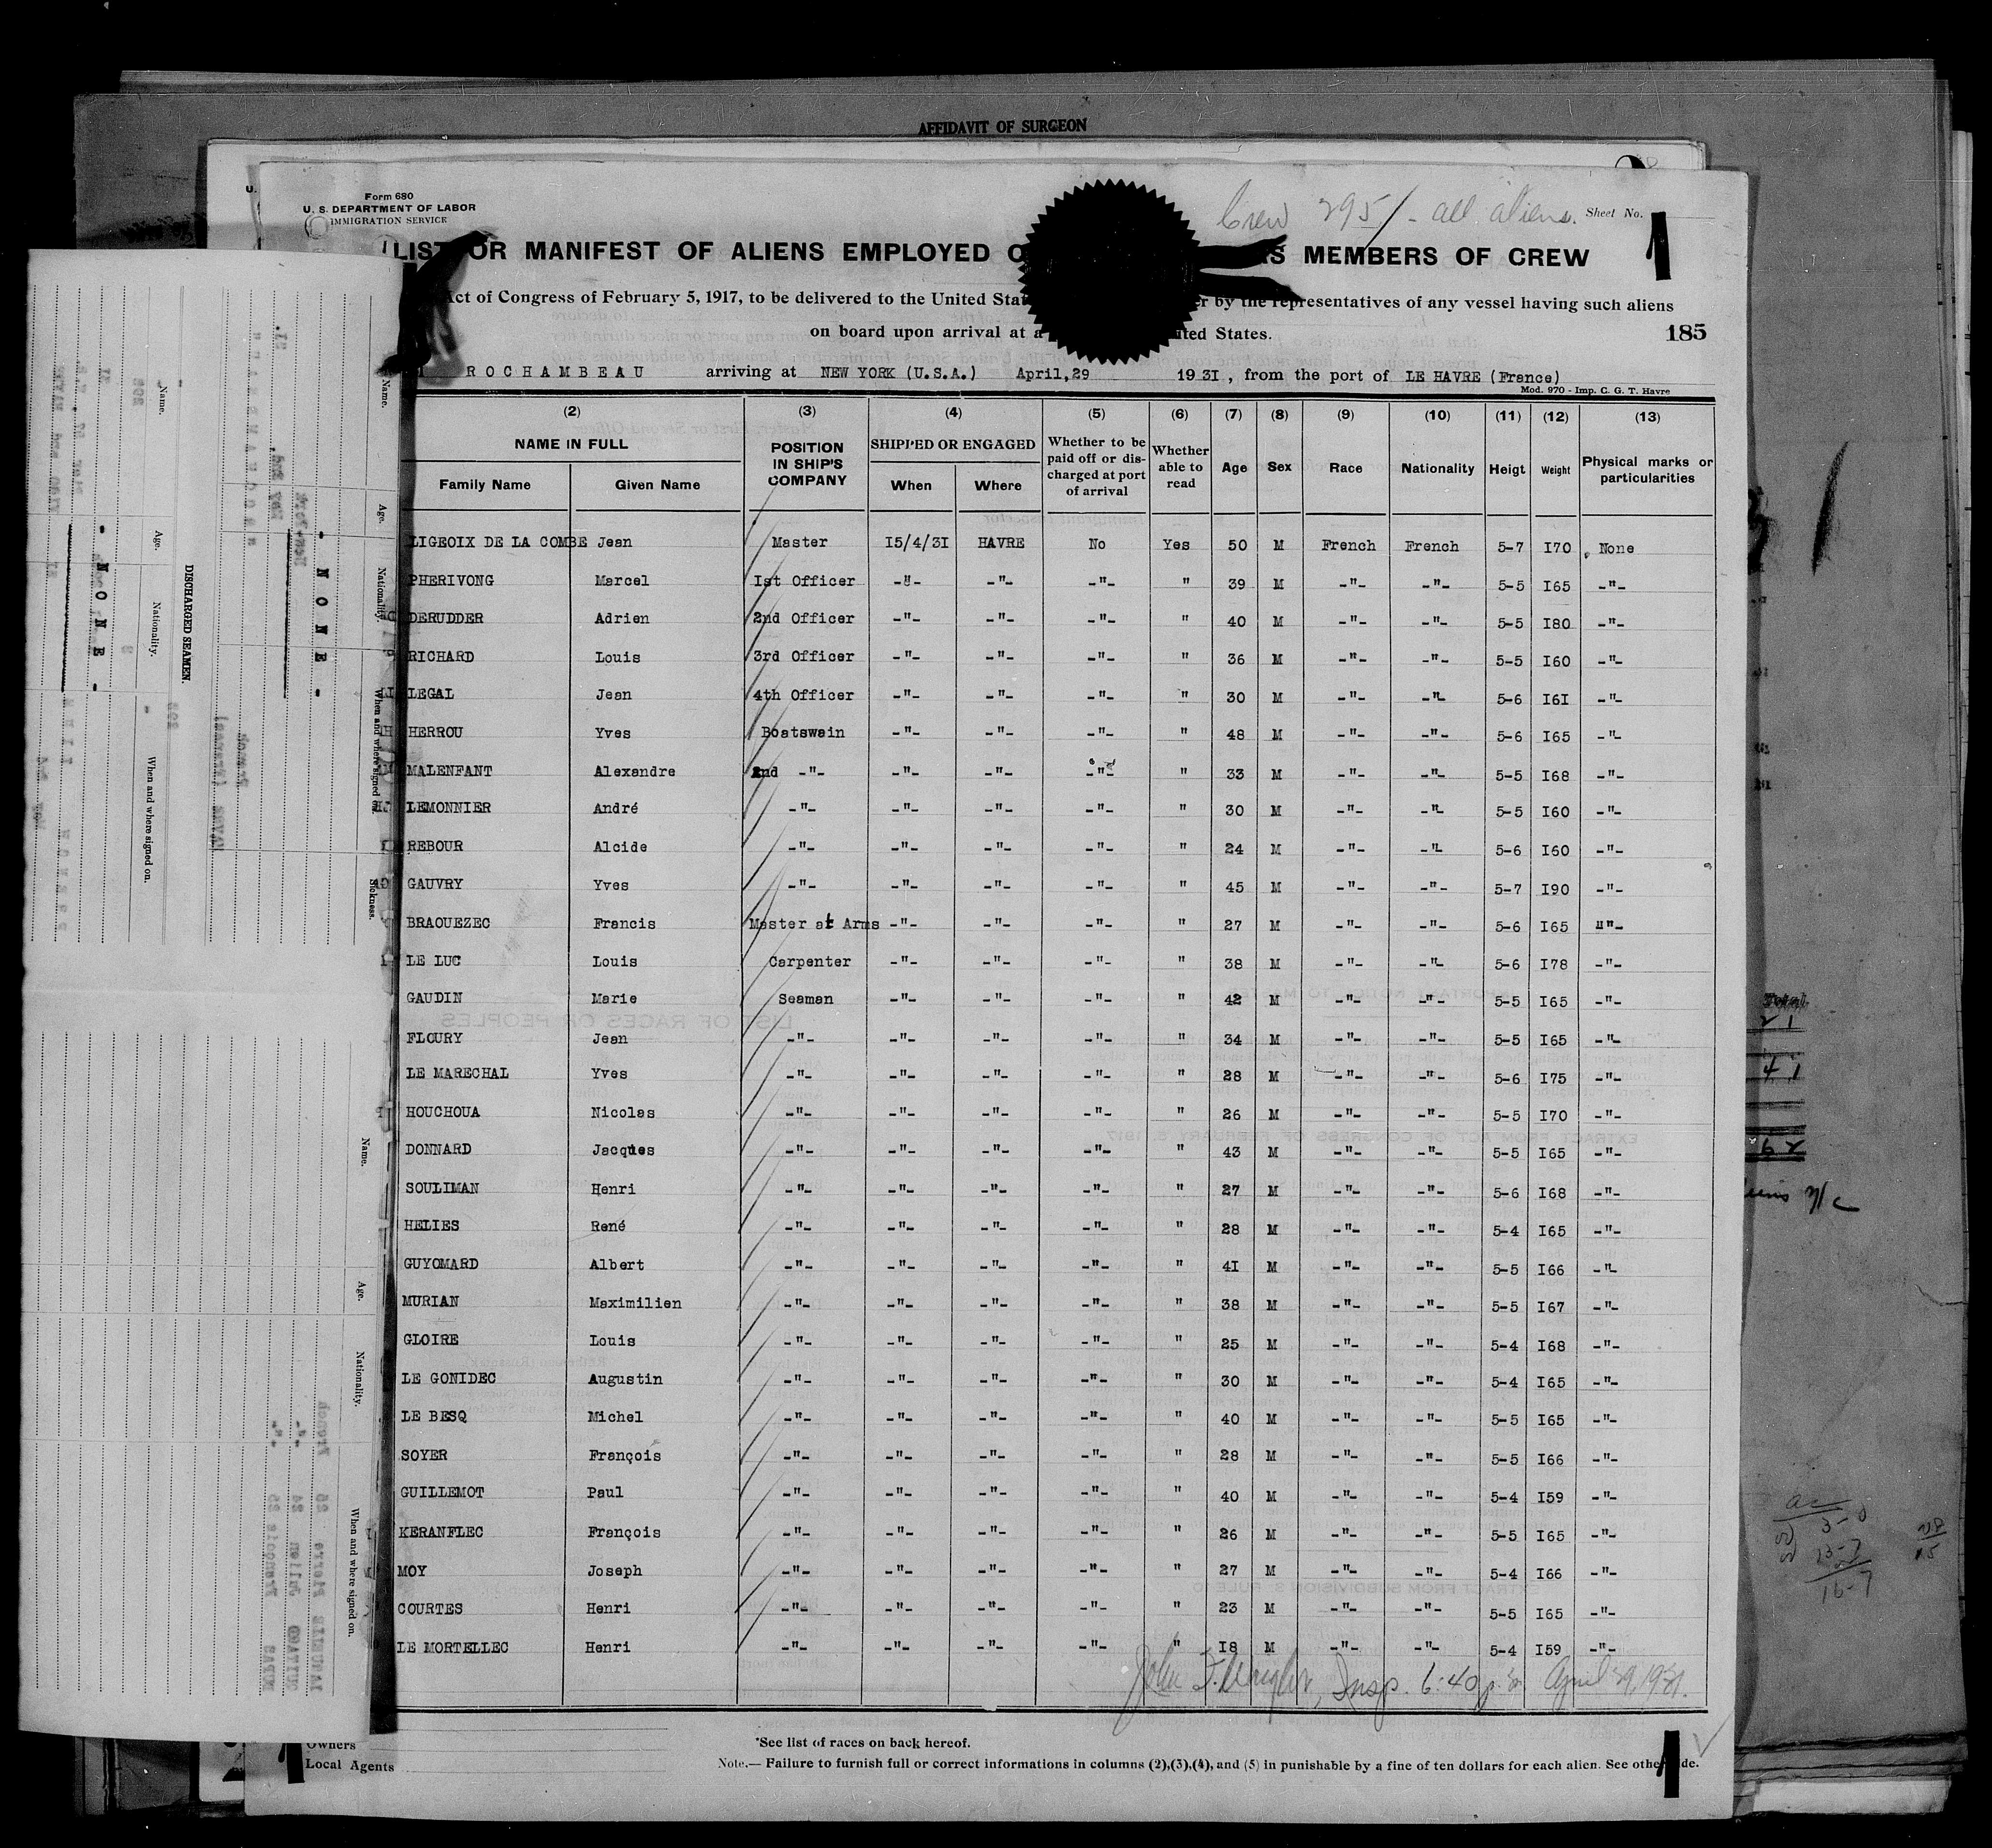 AFFIDAVIT OF SURGEON
Form 680
U. S. DEPARTMENT OF LABOR
IMMIGRATION SERVICE
Crew 295 - all aliens. Sheet No. 1
LIST OR MANIFEST OF ALIENS EMPLOYED AS MEMBERS OF CREW
Act of Congress of February 5, 1917, to be delivered to the United by the representatives of any vessel having such aliens
on board upon arrival at a United States.
185
ROCHAMBEAU arriving at NEW YORK (U.S.A.) April,29 1931, from the port of LE HAVRE (France)
Mod. 970 - Imp. C. G. T. Havre
(2) (3) (4) (5) (6) (7) (8) (9) (10) (11) (12) (13)
NAME IN FULL
Family Name Given Name
POSITION IN SHIP'S COMPANY
SHIPPED OR ENGAGED
When Where
Whether to be paid off or discharged at port of arrival
Whether able to read
Age Sex Race Nationality Heigt Weight
Physical marks or particularities
LIGEOIX DE LA COMBE Jean Master 15/4/31 HAVRE No Yes 50 M French French 5-7 I70 None
PHERIVONG Marcel Ist Officer -"- -"- -"- " 39 M -"- -"- 5-5 I65 -"-
DERUDDER Adrien 2nd Officer -"- -"- -"- " 40 M -"- -"- 5-5 I80 -"-
RICHARD Louis 3rd Officer -"- -"- -"- " 36 M -"- -"- 5-5 I60 -"-
LEGAL Jean 4th Officer -"- -"- -"- " 30 M -"- -"- 5-6 I6I -"-
HERROU Yves Boatswain -"- -"- -"- " 48 M -"- -"- 5-6 I65 -"-
MALENFANT Alexandre 2nd -"- -"- -"- -"- " 33 M -"- -"- 5-5 I68 -"-
LEMONNIER André -"- -"- -"- -"- " 30 M -"- -"- 5-5 I60 -"-
REBOUR Alcide -"- -"- -"- -"- " 24 M -"- -"- 5-6 I60 -"-
GAUVRY Yves -"- -"- -"- -"- " 45 M -"- -"- 5-7 I90 -"-
BRAOUEZEC Francis Master at Arms -"- -"- -"- " 27 M -"- -"- 5-6 I65 "-
LE LUC Louis Carpenter -"- -"- -"- " 38 M -"- -"- 5-6 I78 -"-
GAUDIN Marie Seaman -"- -"- -"- " 42 M -"- -"- 5-5 I65 -"-
FLOURY Jean -"- -"- -"- -"- " 34 M -"- -"- 5-5 I65 -"-
LE MARECHAL Yves -"- -"- -"- -"- " 28 M -"- -"- 5-6 I75 -"-
HOUCHOUA Nicolas -"- -"- -"- -"- " 26 M -"- -"- 5-5 I70 -"-
DONNARD Jacques -"- -"- -"- -"- " 43 M -"- -"- 5-5 I65 -"-
SOULIMAN Henri -"- -"- -"- -"- " 27 M -"- -"- 5-6 I68 -"-
HELIES René -"- -"- -"- -"- " 28 M -"- -"- 5-4 I65 -"-
GUYOMARD Albert -"- -"- -"- -"- " 4I M -"- -"- 5-5 I66 -"-
MURIAN Maximilien -"- -"- -"- -"- " 38 M -"- -"- 5-5 I67 -"-
GLOIRE Louis -"- -"- -"- -"- " 25 M -"- -"- 5-4 I68 -"-
LE GONIDEC Augustin -"- -"- -"- -"- " 30 M -"- -"- 5-4 I65 -"-
LE BESQ Michel -"- -"- -"- -"- " 40 M -"- -"- 5-5 I65 -"-
SOYER François -"- -"- -"- -"- " 28 M -"- -"- 5-5 I66 -"-
GUILLEMOT Paul -"- -"- -"- -"- " 40 M -"- -"- 5-4 I59 -"-
KERANFLEC François -"- -"- -"- -"- " 26 M -"- -"- 5-5 I65 -"-
MOY Joseph -"- -"- -"- -"- " 27 M -"- -"- 5-4 I66 -"-
COURTES Henri -"- -"- -"- -"- " 23 M -"- -"- 5-5 I65 -"-
LE MORTELLEC Henri -"- -"- -"- -"- " I8 M -"- -"- 5-4 I59 -"-
John F. Wright, Insp. 6:40 p.m. April 29, 1931.
Owners
Local Agents
*See list of races on back hereof.
Note.— Failure to furnish full or correct informations in columns (2),(3),(4), and (5) in punishable by a fine of ten dollars for each alien. See othe de.
Name.
Age.
Nationality.
When and where signed on.
Sickness.
- N O N E -
DISCHARGED SEAMEN.
Name.
Age.
Nationality.
When and where signed on.
- N O N E -
Name.
Age.
Nationality.
When and where signed on.